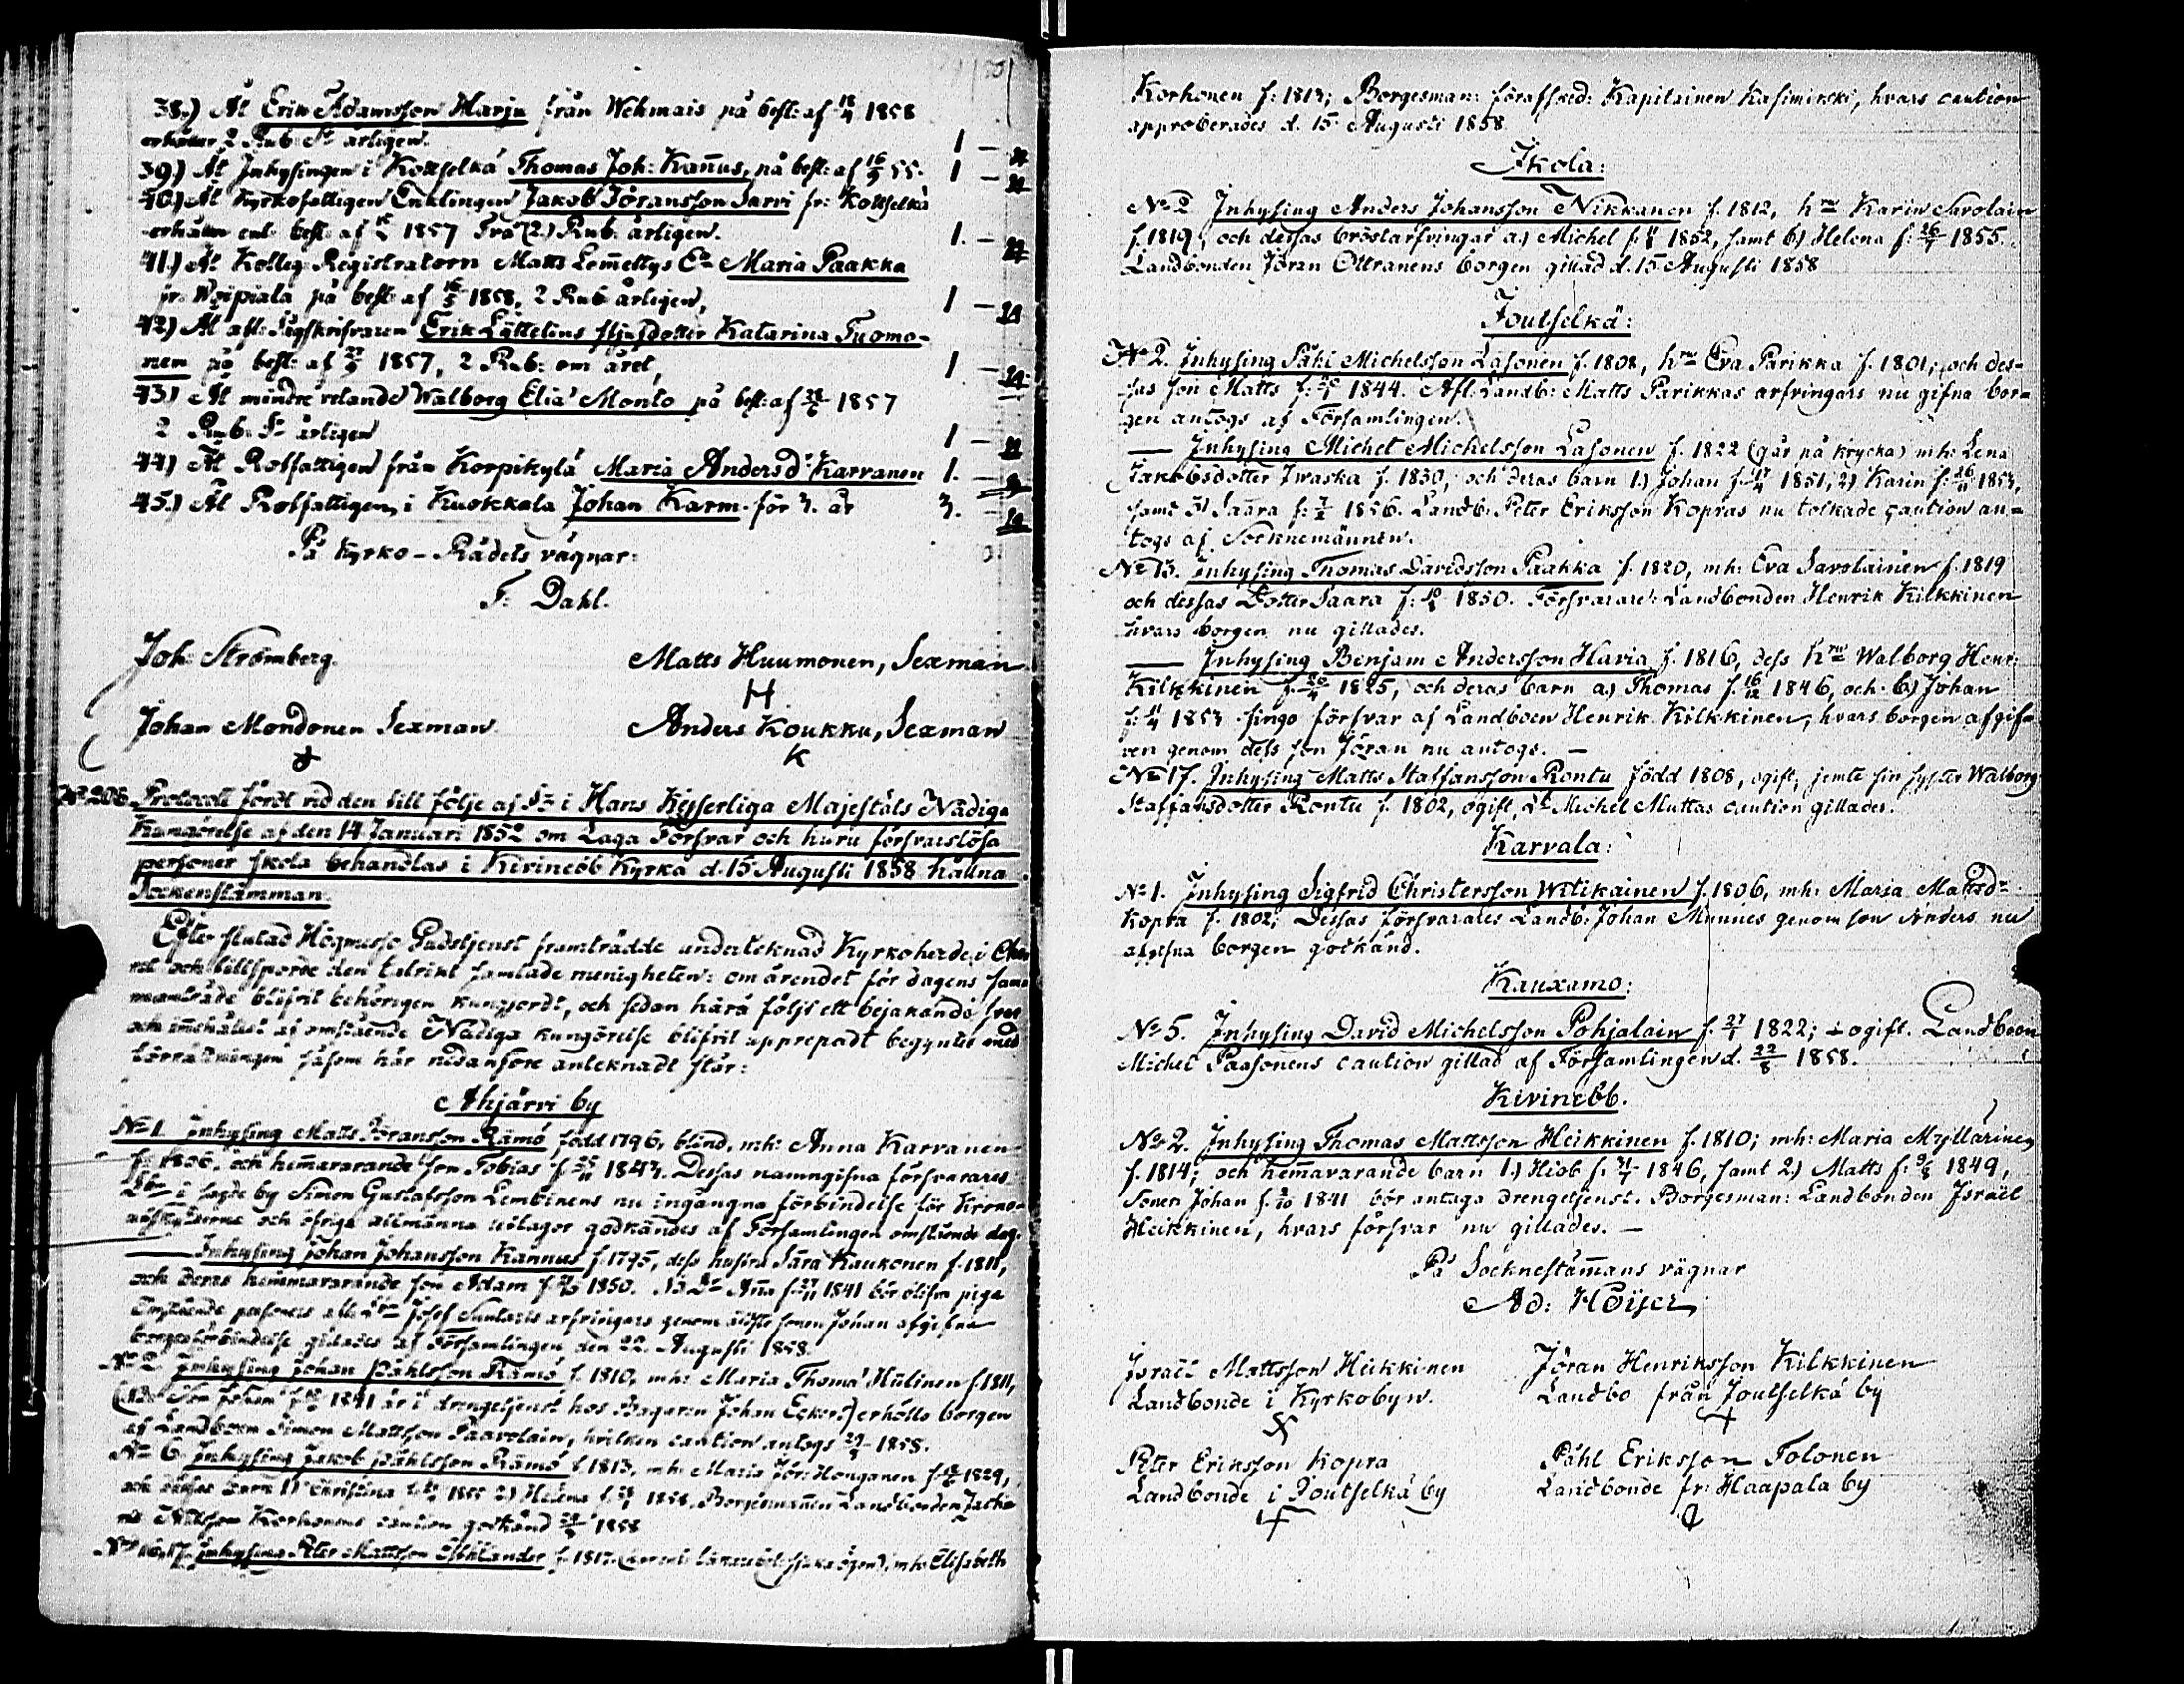 38.) Åt Erik Adamsson Harju från Wehmais på besl: af 18/4 1858
erhåller 2 Rub: Sr årligen. 1 –
39.) Åt Inhysingen i Kottselkä Thomas Joh: Kan̄us, på besl: af 16/9 55. 1 –
40.) Åt Kyrkofattigen Enklingen Jakob Jöransson Sarvi fr: Kottselkä
erhållen enl: besl: af 1857 Två (2) Rub. årligen. 1. –
41.) Åt Kolleg: Registratorn Matts Lem̄ettys Ea Maria Paakka
fr: Woipiala på besl: af 16/5 1858, 2 Rub årligen, 1 –
42) Åt afl: Erik Lättelins stjufdotter Katarina Tuomo-
nen på besl: af 27/9 1857, 2 Rub: om året, 1 –
43.) Åt mindre vetande Walborg Elia' Monto på besl: af 1857
2 Rub: Sr årligen 1 –
44) Åt Rotfattigen från Korpikylä Maria Andersd:r Karvanen 1. –
45.) Åt Rotfattigen i Kuokkala Johan Karm. för 3. år 3. –
På Kyrko-Rådets vägnar:
F: Dahl.
Joh: Strömberg. Matts Huumonen, Sexman
H
Johan Mondonen Sexman Anders Koukku, Sexman
K
No 206. Protocoll fördt vid den till följe af §3 i Hans Kejserliga Majestäts Nådiga
Kungörelse af den 14 Januari 1852 om Laga Försvar och huru försvarslösa
personer skola behandlas i Kivinebb Kyrka d. 15 Augusti 1858 hållna
Sockenstämman.
Efter slutad Högmesso Gudstjenst framträdde undertecknad Kyrkoherde i
och tillsporde den talrikt samlade menigheten: om ärendet för dagens sam-
manträde blifvit behörigen kungjordt, och sedan härå följt ett bejakande svar
och innehållet af omstående Nådiga kungörelse blifvit upprepadt begyntes med
förrättningen såsom här nedanföre antecknadt står:
Ahjärvi by
No 1. Inhysing Matts Jöransson Rämö född 1796, blind, mh: Anna Karvanen
f: 1806, och hem̄avarande son Tobias f. 1843. Dessas namngifna försvarares
i sagde by Simon Gustafsson Lembinens nu ingångna förbindelse för Krono-
utskylderna och öfriga allmänna utlagor godkändes af Församlingen omstående dag.
— Inhysing Johan Johansson Kannus f. 1795, dess hustru Sara Kaukonen f. 1811,
och deras hemmavarande son Adam f. 1850. An̄a f. 27/11 1841 bör blifva piga
Omstående persons Josef Suntaris arfvingars genom äldste sonen Johan afgifna
borgesförbindelse gillades af Församlingen den 22. Augusti 1858.
No 2 Inhysing Johan Påhlsson Rämö f. 1810, mh: Maria Thoma' Hülinen f. 1811,
Son Johan f. 1841 är i drengetjenst hos Bagaren Johan Eckert) erhölls borgen
af Landboen Simon Mattsson Paavolain, hvilken caution antogs 1858.
No 6. Inhysing Jakob Påhlsson Rämö f. 1813, mh: Maria Jör: Honganen f. 1829,
och dessas barn 1) Christina 1855 2) Helena f. 1858. Borgesmannen Landbonden Zacha-
Nilsson Korhonens caution godkänd 1858
No 16,17. Inhysing Peter Mattsson Åhlander f. 1817. mh: Elisabeth
Korhonen f: 1813; Borgesman: förafsked: Kapitainen Kasimirski, hvars caution
approberades d. 15 Augusti 1858.
Ikola:
No 2 Inhysing Anders Johansson Nikkanen f. 1812, hru Karin Savolain
f. 1819, och dessas bröstarfvingar a.) Michel f. 1852, samt b) Helena f: 26/7 1855.
Landbonden Jöran Ottranens borgen gillad d. 15 Augusti 1858
Joutselkä:
No 2. Inhysing Påhl Michelsson Läsonen f. 1808, hru Eva Parikka f. 1801; och des-
sas son Matts f: 1844. Afl: Landb: Matts Parikkas arfvingars nu gifna bor-
gen antogs af Församlingen.
— Inhysing Michel Michelsson Lasonen f. 1822 (går på krycka) mh: Lena
Jakobsdotter Iwaska f. 1830, och deras barn 1.) Johan f. 17/4 1851, 2) Karin f: 26/11 1853,
samt 3) Saara f: 1856. Landb: Peter Eriksson Kopras nu tolkade caution an-
togs af Socknemännen.
No 13. Inhysing Thomas Davidsson Paakka f. 1820, mh: Eva Savolainen f. 1819
och dessas Dotter Saara f: 1850. Försvarare: Landbonden Henrik Kilkkinen
hvars borgen nu gillades.
— Inhysing Benjam Andersson Havia f. 1816, dess hru Walborg Henr:
Kilkkinen f. 20/4 1825, och deras barn a.) Thomas f. 16/12 1846, och b.) Johan
f: 11/4 1853 fingo försvar af Landboen Henrik Kilkkinen, hvars borgen afgif-
ven genom dess son Jöran nu antogs. –
No 17. Inhysing Matts Staffansson Rontu född 1808, ogift, jemte sin syster Walborg
Staffansdotter Rontu f. 1802, ogift, Michel Muttas caution gillades.
Karvala:
No 1. Inhysing Sigfrid Christersson Witikainen f. 1806, mh: Maria Mattsdr
Kopra f. 1802; Dessas försvarares Landb: Johan Munnes genom son Anders nu
afgifna borgen godkänd.
Kauxamo:
No 5. Inhysing David Michelsson Pohjalain f. 27/1 1822; ogift. Landboen
Michel Paasonens caution gillad af Församlingen d. 22/8 1858.
Kivinebb.
No 2. Inhysing Thomas Mattsson Heikkinen f. 1810; mh: Maria Myllärinen
f. 1814; och hem̄avarande barn 1.) Hiob f. 31/7 1846, samt 2.) Matts f: 9/8 1849,
Sonen Johan f. 1841 bör antaga drengetjenst. Borgesman: Landbonden Israël
Heikkinen, hvars försvar nu gillades. –
På Socknestäm̄ans vägnar
Ad: Höijer
Israël Mattsson Heikkinen Jöran Henriksson Kilkkinen
Landbonde i Kyrkobyn. Landbo från Joutselkä by
Peter Eriksson Kopra Påhl Eriksson Tolonen
Landbonde i Joutselkä by Landbonde fr: Haapala by